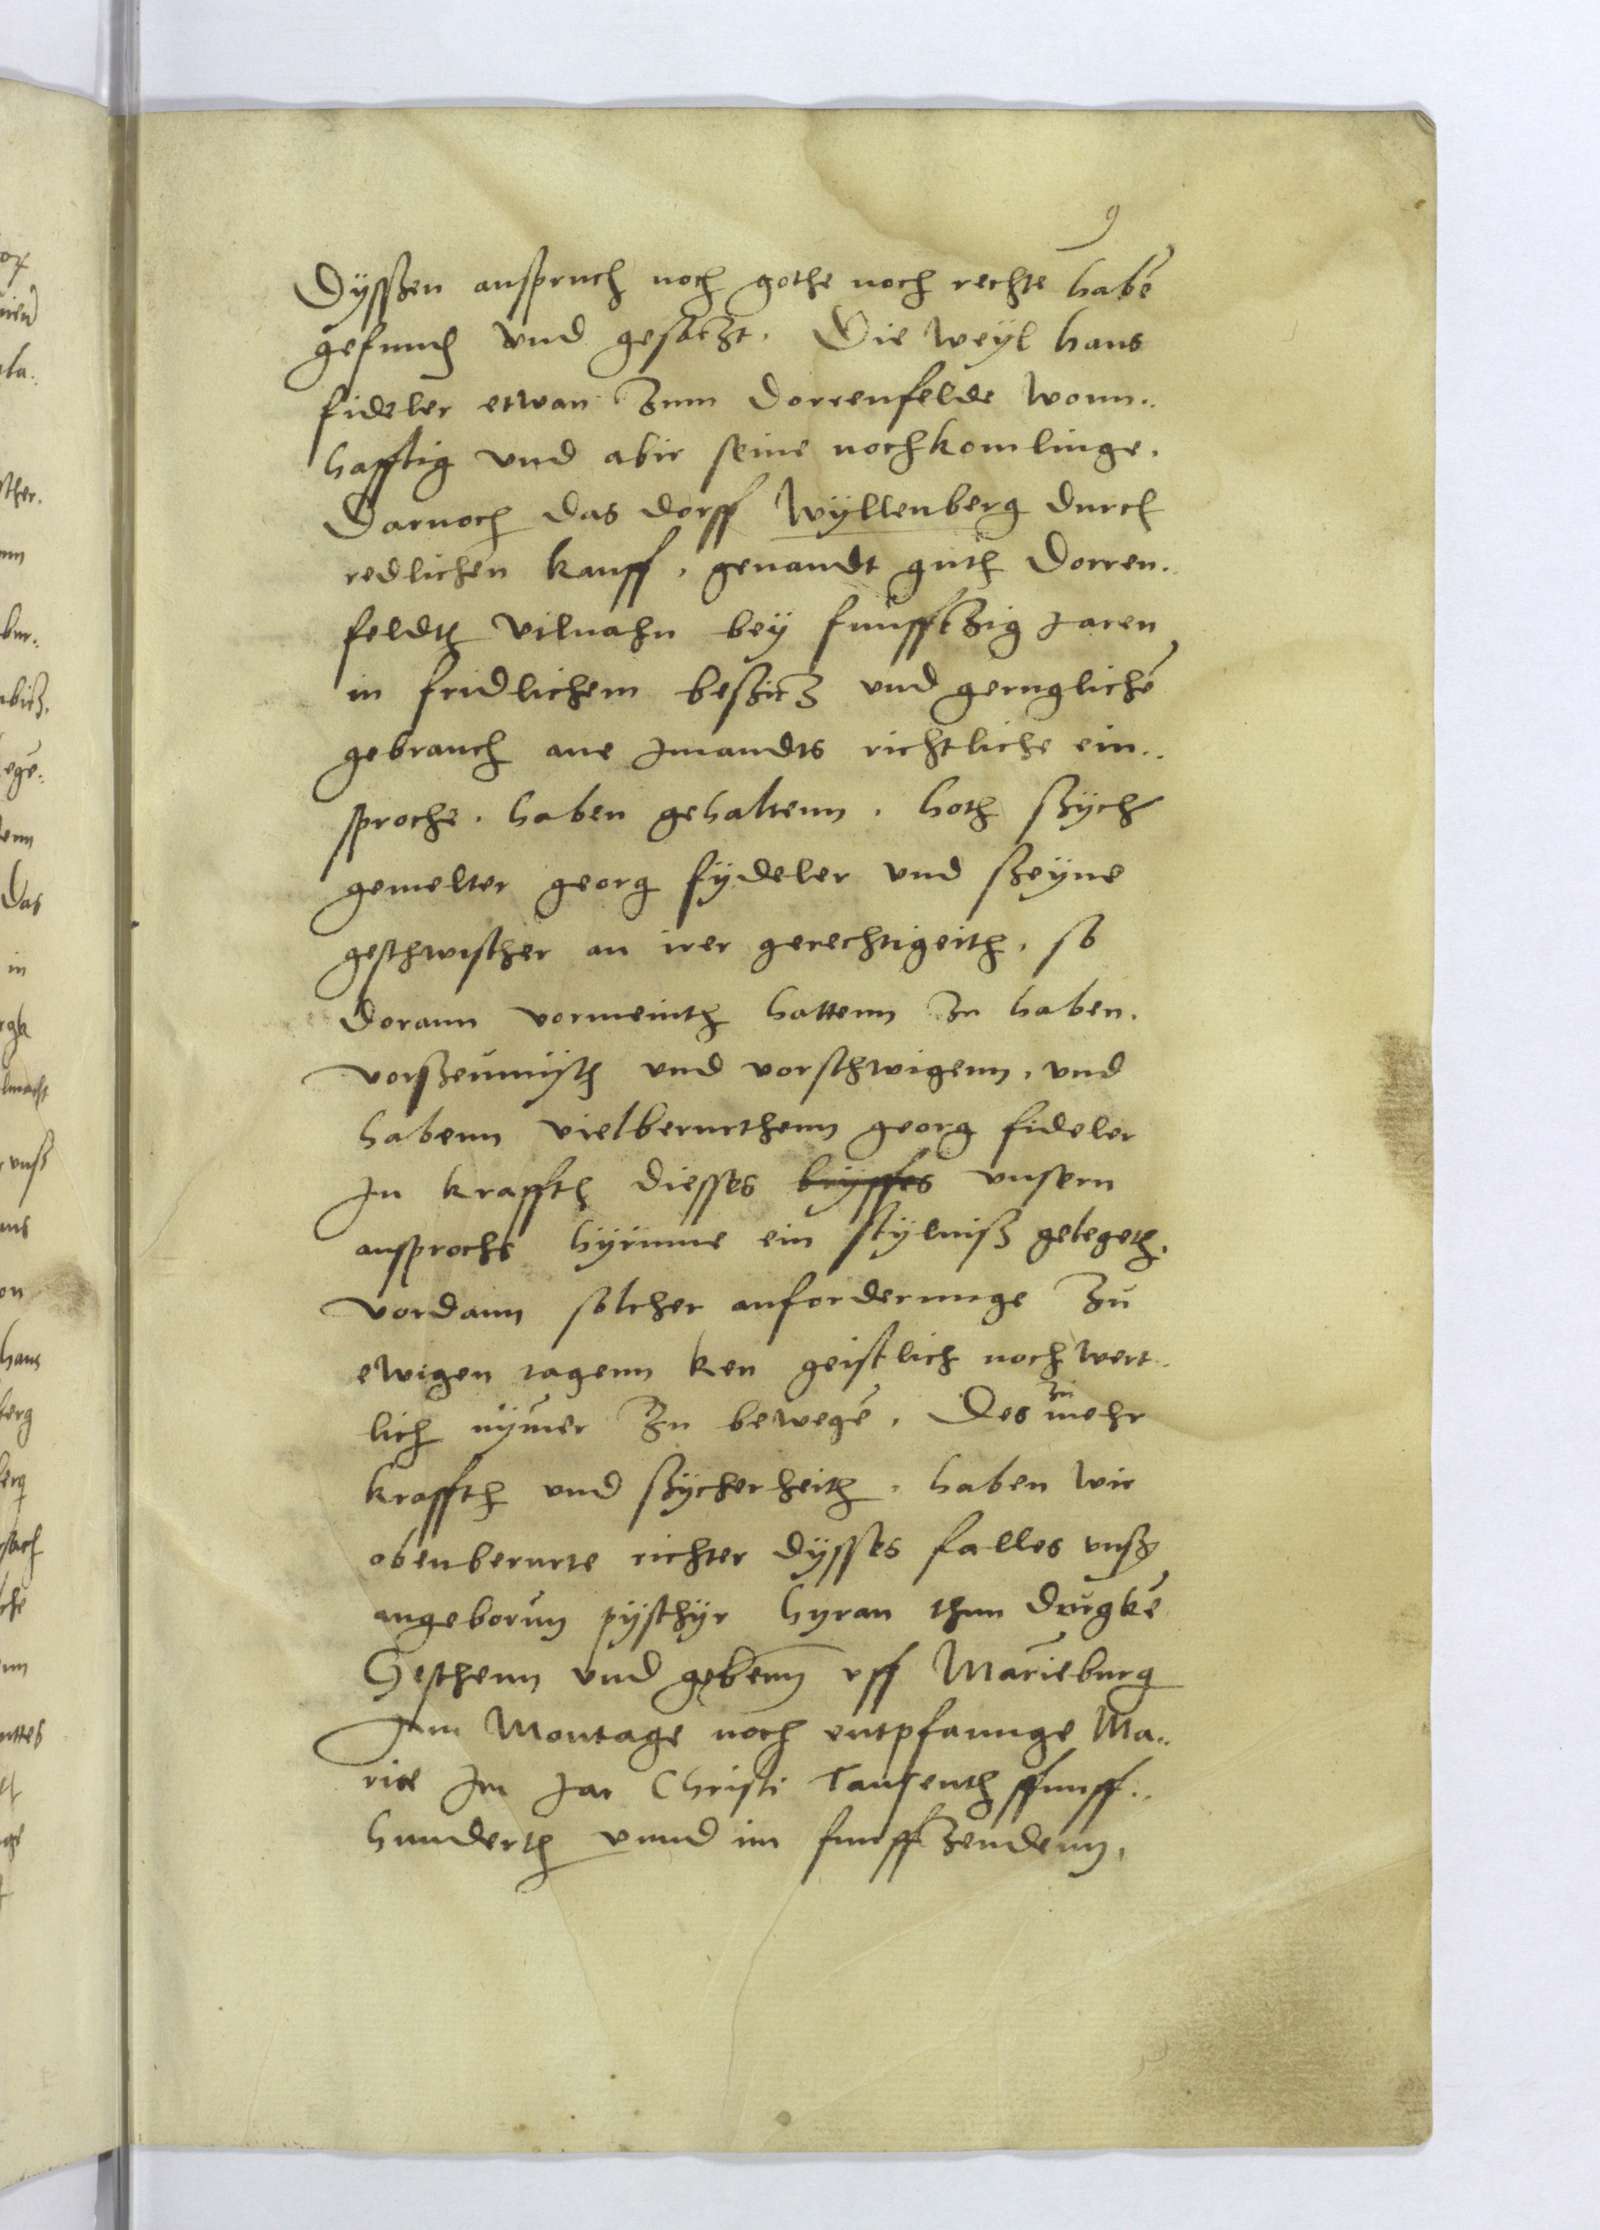 9
Dysszen anspruch noch gothe noch rechte habē
gefunden vnd gesaczt. Die weyl hans
fideler etwan zum dorrenfelde wonn..
hafftig vnd abir seine nochkomlinge.
Darnoch das dorff Wyllenberg durch
redlichen kauff, genandt guth dorren..
feldth vilnahn bey funfftzig jaren
in fridlichem beszitz vnd geruglichē
gebrauch ane jmandts richtliche ein..
sproche. haben gehaltenn. hoth szych
gemelter georg fydeler vnd szeyne
geschwister an irer gerechtigeith, so
dorann vormeinth hattenn zu haben.
vorszeumyth vnd vorschwigenn, vnd
habenn vielberurthenn georg fideler
In krafft diesses bryffes vnsern
ansprochs hyrinne ein stylnisz gelegeth.
vordann solcher anforderunge zu
ewigen tagenn ken geistlich noch wert..
lich nymer zu bewegē. Des zu mehr
kraffth vnd szycherheith. haben wir
obenberurte richter dysses falles vnsz
angeborun pyschyr hyran thun drugkē
Geschenn vnd gebenn vff Marieburg
Am Montage noch entpfaunge Ma..
rie Im Jar Christi Tausenth ffunff..
hunderth vnnd im funffzendenn,